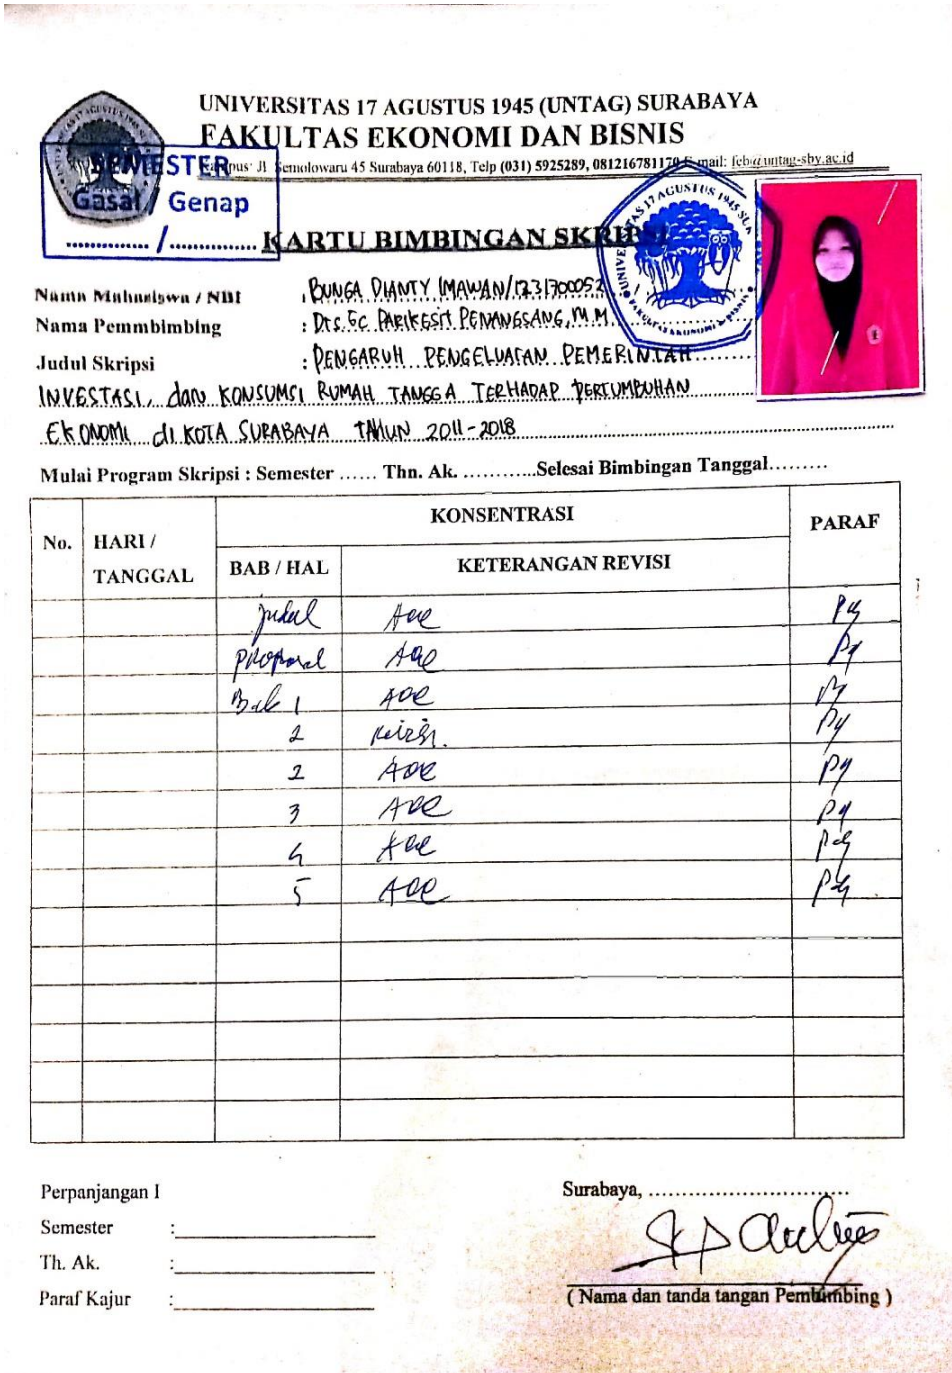 UNIVERSITAS 17 AGUSTUS 1945 (UNTAG) SURABAYA
FAKULTAS EKONOMI DAN BISNIS
Jl. Semolowaru 45 Surabaya 60118, Telp (031) 5925289, 081216781170 E-mail: feb@untag-sby.ac.id
SEMESTER
Gasal / Genap
............. / .............
KARTU BIMBINGAN SKRIPSI
Nama Mahasiswa / NBI : BUNGA DIANTY IMAWAN/1231700052
Nama Pemmbimbing : Drs. Ec. PARIKESIT PENANGSANG, M.M
Judul Skripsi : PENGARUH PENGELUARAN PEMERINTAH
INVESTASI, dan KONSUMSI RUMAH TANGGA TERHADAP PERTUMBUHAN
EKONOMI di KOTA SURABAYA TAHUN 2011-2018
Mulai Program Skripsi : Semester ...... Thn. Ak. ............Selesai Bimbingan Tanggal.........
No. HARI / TANGGAL KONSENTRASI PARAF
BAB / HAL KETERANGAN REVISI
Judul Acc
Proposal Acc
Bab 1 Acc
2
2 Acc
3 Acc
4 Acc
5 Acc
Perpanjangan I
Semester :
Th. Ak. :
Paraf Kajur :
Surabaya, ..............................
( Nama dan tanda tangan Pembimbing )